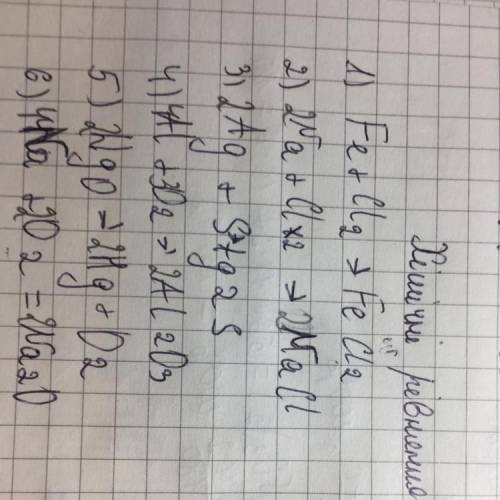 Хімічні рівняння
1) Fe + Cl2 → FeCl2
2) 2Na + Cl2 → 2NaCl
3) 2Ag + S → Ag2S
4) 4Al + 3O2 → 2Al2O3
5) 2HgO → 2Hg + O2
6) 4Na + 2O2 = 2Na2O